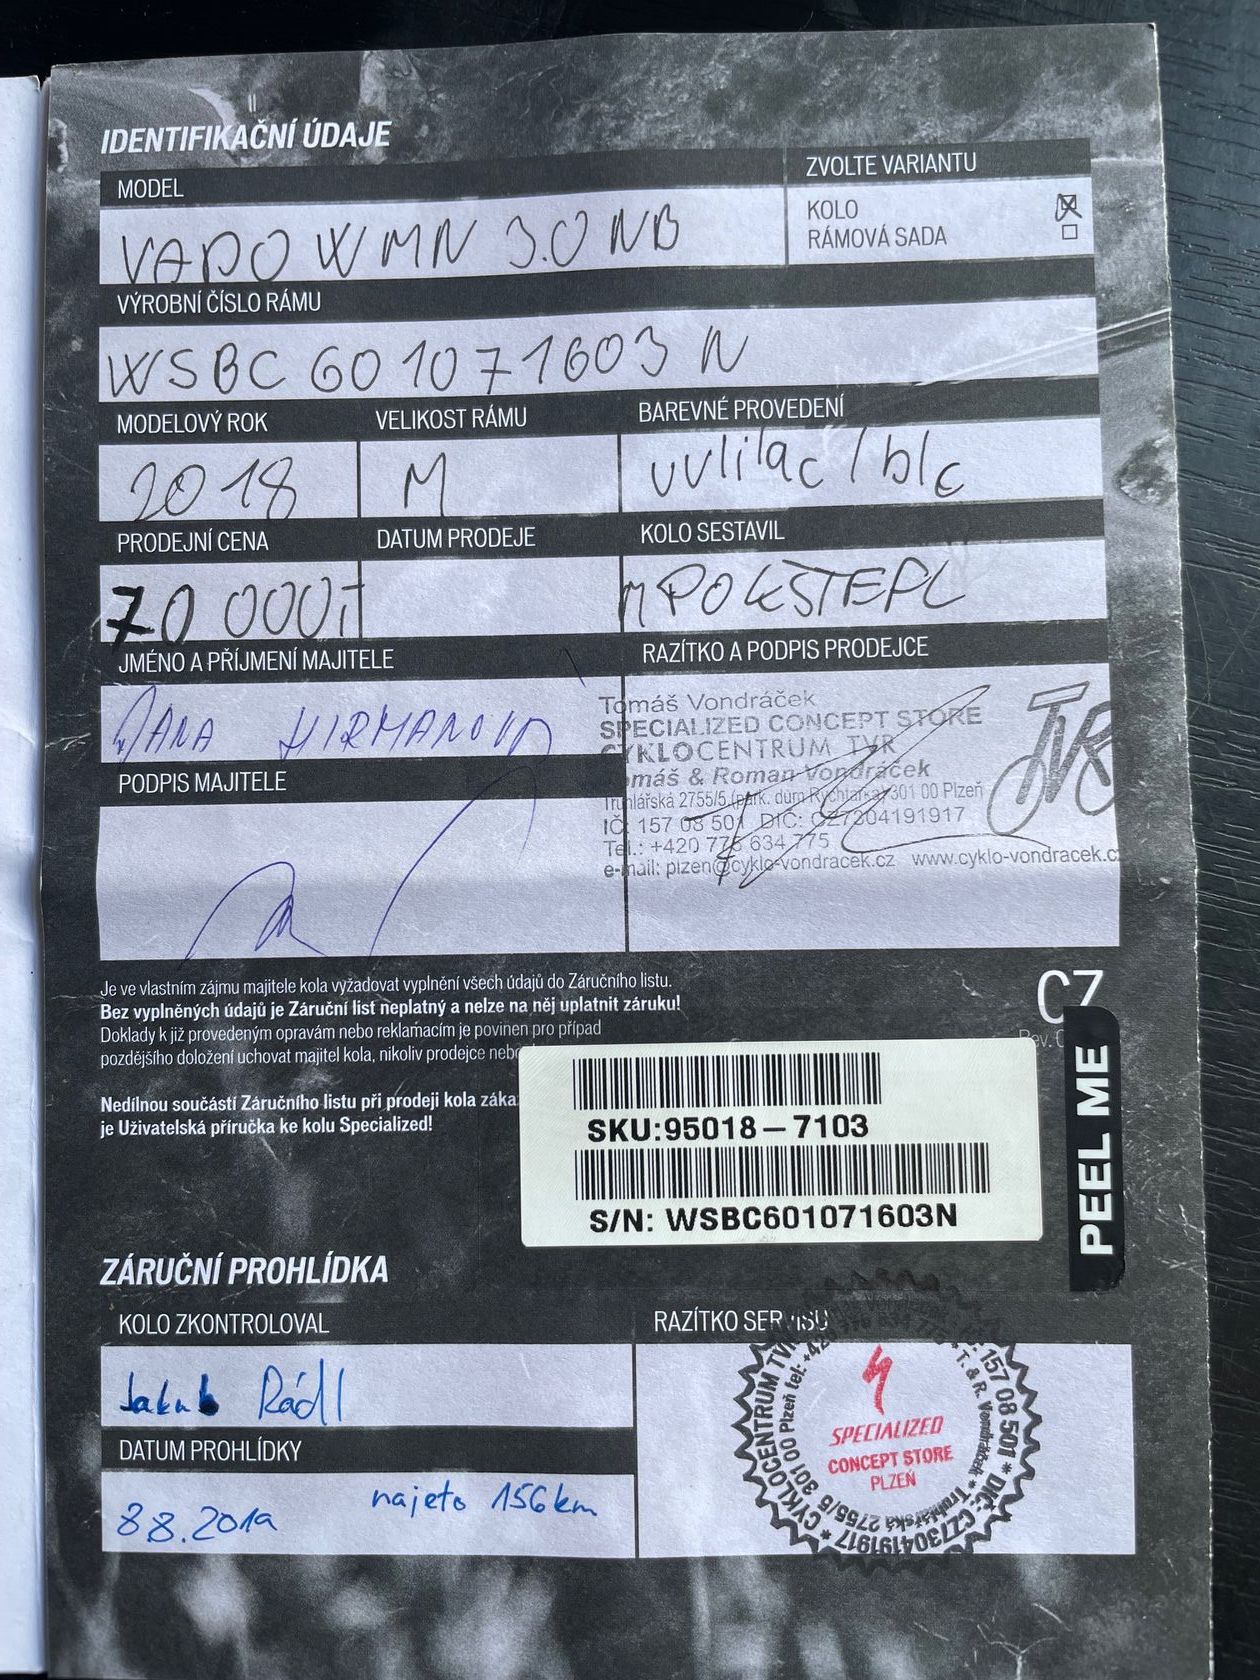 IDENTIFIKAČNÍ ÚDAJE
MODEL
ZVOLTE VARIANTU
VADO WMN 3.0 NB
KOLO
RÁMOVÁ SADA
VÝROBNÍ ČÍSLO RÁMU
WSBC 601071603 N
MODELOVÝ ROK
VELIKOST RÁMU
BAREVNÉ PROVEDENÍ
2018
M
uvlilac / blc
PRODEJNÍ CENA
DATUM PRODEJE
KOLO SESTAVIL
70 000,-
JMÉNO A PŘÍJMENÍ MAJITELE
RAZÍTKO A PODPIS PRODEJCE
Tomáš Vondráček
SPECIALIZED CONCEPT STORE
CYKLOCENTRUM TVR
Tomáš & Roman Vondráček
Truhlářská 2755/5 (park. dum Rychtářka) 301 00 Plzeň
IČ: 157 08 501 DIČ: CZ7304191917
Tel.: +420 775 634 775
e-mail: plzen@cyklo-vondracek.cz www.cyklo-vondracek.cz
TVR
PODPIS MAJITELE
Je ve vlastním zájmu majitele kola vyžadovat vyplnění všech údajů do Záručního listu.
Bez vyplněných údajů je Záruční list neplatný a nelze na něj uplatnit záruku!
Doklady k již provedeným opravám nebo reklamacím je povinen pro případ
pozdějšího doložení uchovat majitel kola, nikoliv prodejce nebo
CZ
Nedílnou součástí Záručního listu při prodeji kola záka
je Uživatelská příručka ke kolu Specialized!
SKU:95018-7103
S/N: WSBC601071603N
PEEL ME
ZÁRUČNÍ PROHLÍDKA
KOLO ZKONTROLOVAL
RAZÍTKO SERVISU
Jakub Rádl
DATUM PROHLÍDKY
najeto 156km
8.8.2019
SPECIALIZED
CONCEPT STORE
PLZEŇ
CYKLOCENTRUM TVR
157 08 501 * DIČ: CZ7304191917 *
T. & R. Vondráček * Truhlářská 2755/5 301 00 Plzeň tel: